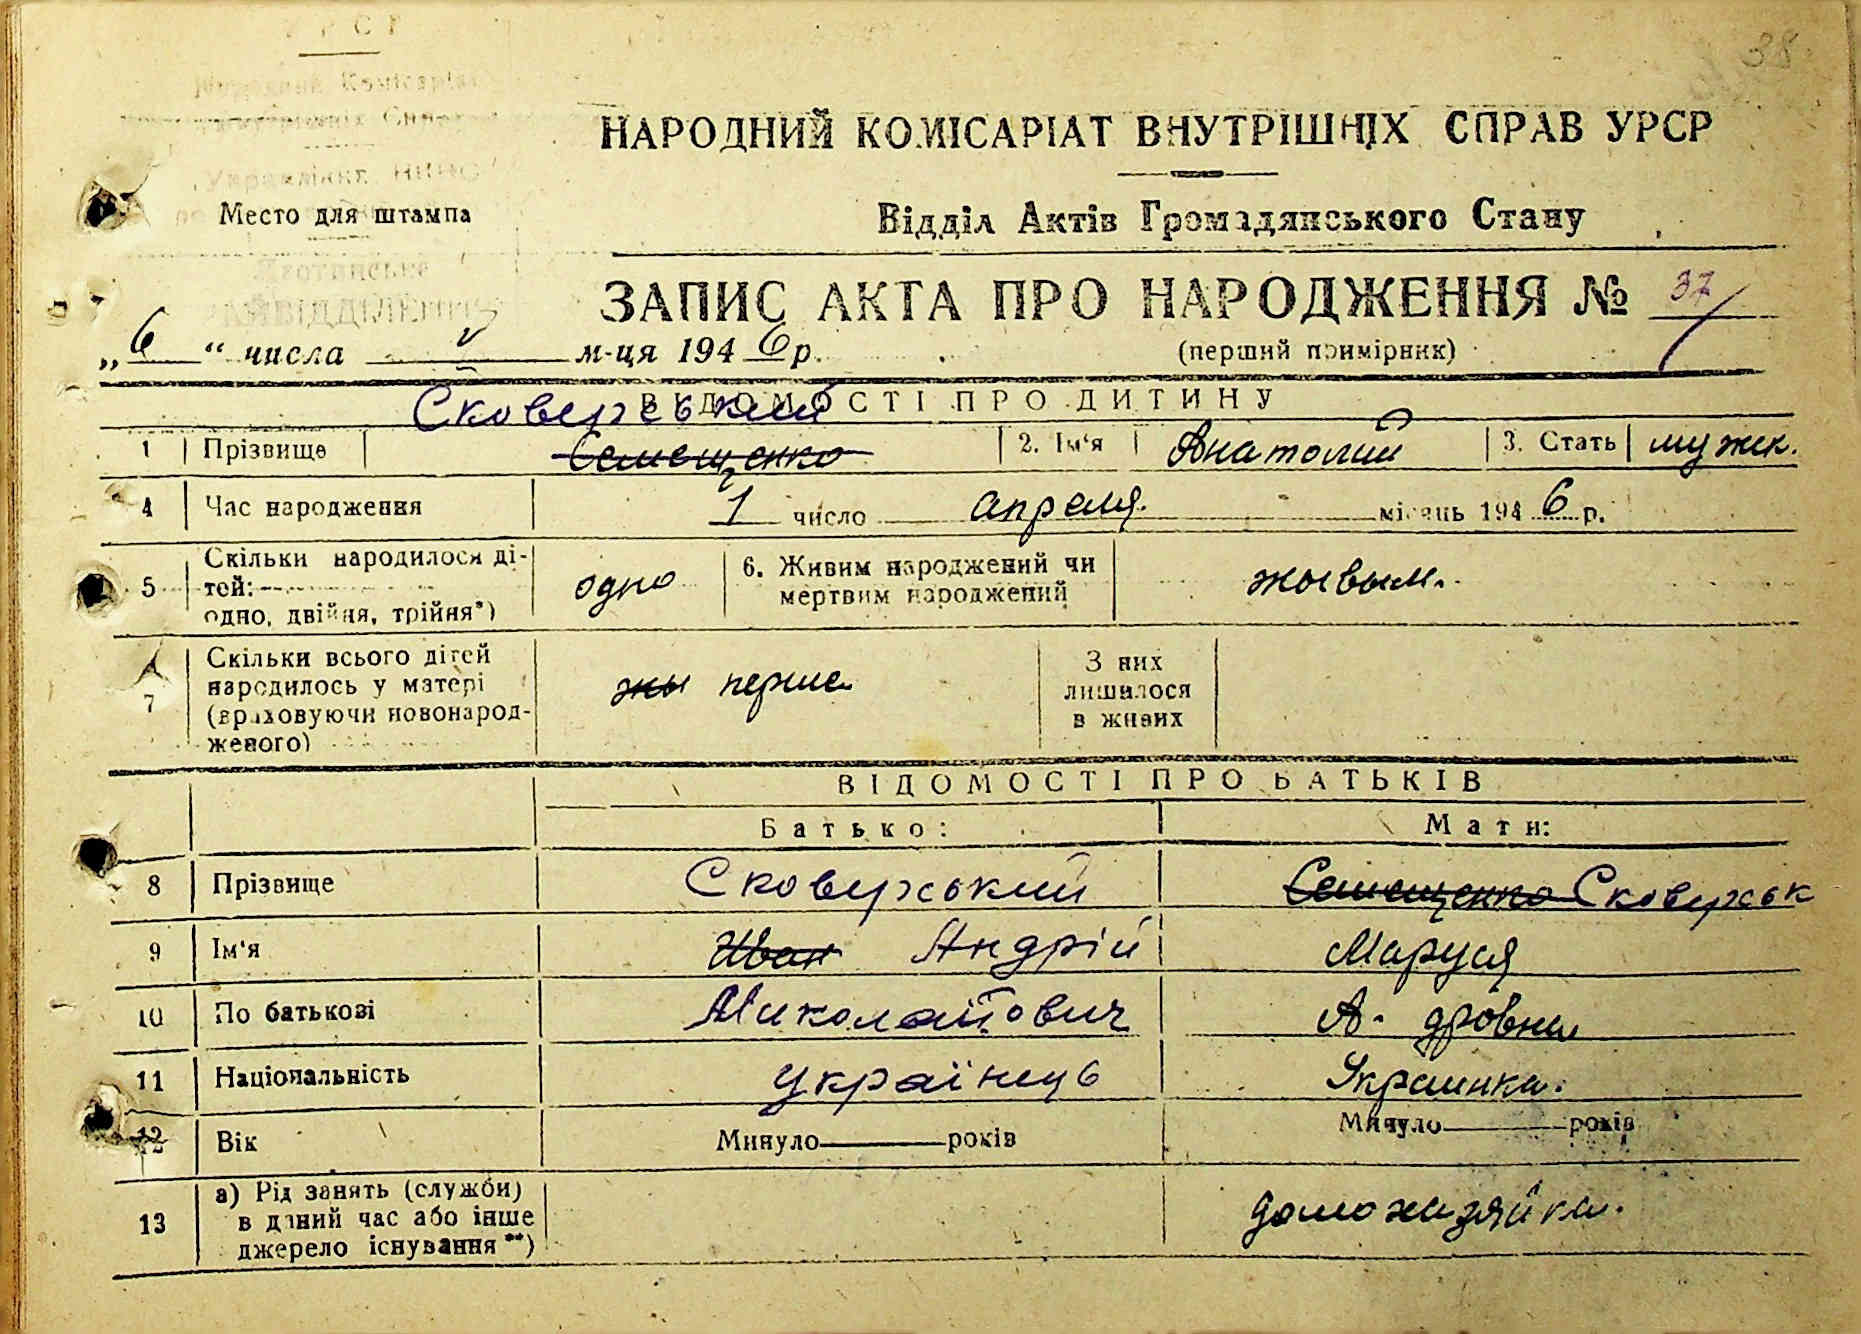 38
УРСР
Народний Комісаріат
Внутрішніх Справ
Управління НКВС
НАРОДНИЙ КОМІСАРІАТ ВНУТРІШНІХ СПРАВ УРСР
Место для штампа
Відділ Актів Громадянського Стану
ЗАПИС АКТА ПРО НАРОДЖЕННЯ № 37
„6“ числа V м-ця 1946 р.
(перший примірник)
ВІДОМОСТІ ПРО ДИТИНУ
Сковерський
1 Прізвище Семещенко 2. Ім'я Анатолий 3. Стать мужск.
4 Час народження 1 число апреля місяць 1946 р.
5 Скільки народилося ді-
тей:
одно, двійня, трійня*) одно
6. Живим народжений чи
мертвим народжений жывым.
7 Скільки всього дітей
народилось у матері
(враховуючи новонарод-
женого) жы перше
З них
лишилося
в живих
ВІДОМОСТІ ПРО БАТЬКІВ
Батько: Мати:
8 Прізвище Сковерський Семещенко Сковерськ
9 Ім'я Иван Андрій Маруся
10 По батькові Миколайович
11 Національність українець Украинка.
12 Вік Минуло років Минуло років
13 а) Рід занять (служби)
в даний час або інше
джерело існування **) домохазяйка.